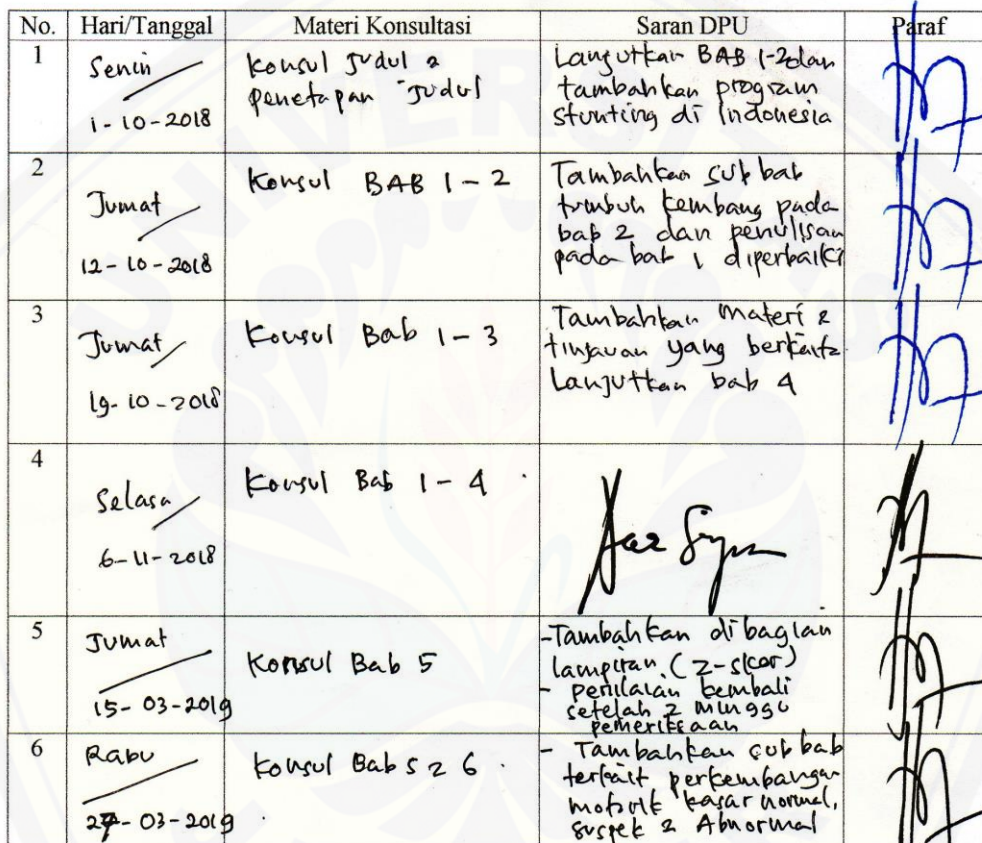 No. Hari/Tanggal Materi Konsultasi Saran DPU Paraf
1
Senin
1-10-2018
Konsul Judul &
penetapan Judul
Lanjutkan BAB 1-2 dan
tambahkan program
stunting di Indonesia
2
Jumat
12-10-2018
Konsul BAB 1-2
Tambahkan sub bab
tumbuh kembang pada
bab 2 dan penulisan
pada bab 1 diperbaiki
3
Jumat
19-10-2018
Konsul Bab 1-3
Tambahkan materi &
tinjauan yang
Lanjutkan bab 4
4
Selasa
6-11-2018
Konsul Bab 1-4
5
Jumat
15-03-2019
Konsul Bab 5
-Tambahkan dibagian
lampiran (z-skor)
- penilaian kembali
setelah 2 minggu
pemeriksaan
6
Rabu
27-03-2019
Konsul Bab 5 & 6
- Tambahkan sub bab
terkait perkembangan
motorik kasar normal,
suspek & Abnormal
UNIVERSITAS